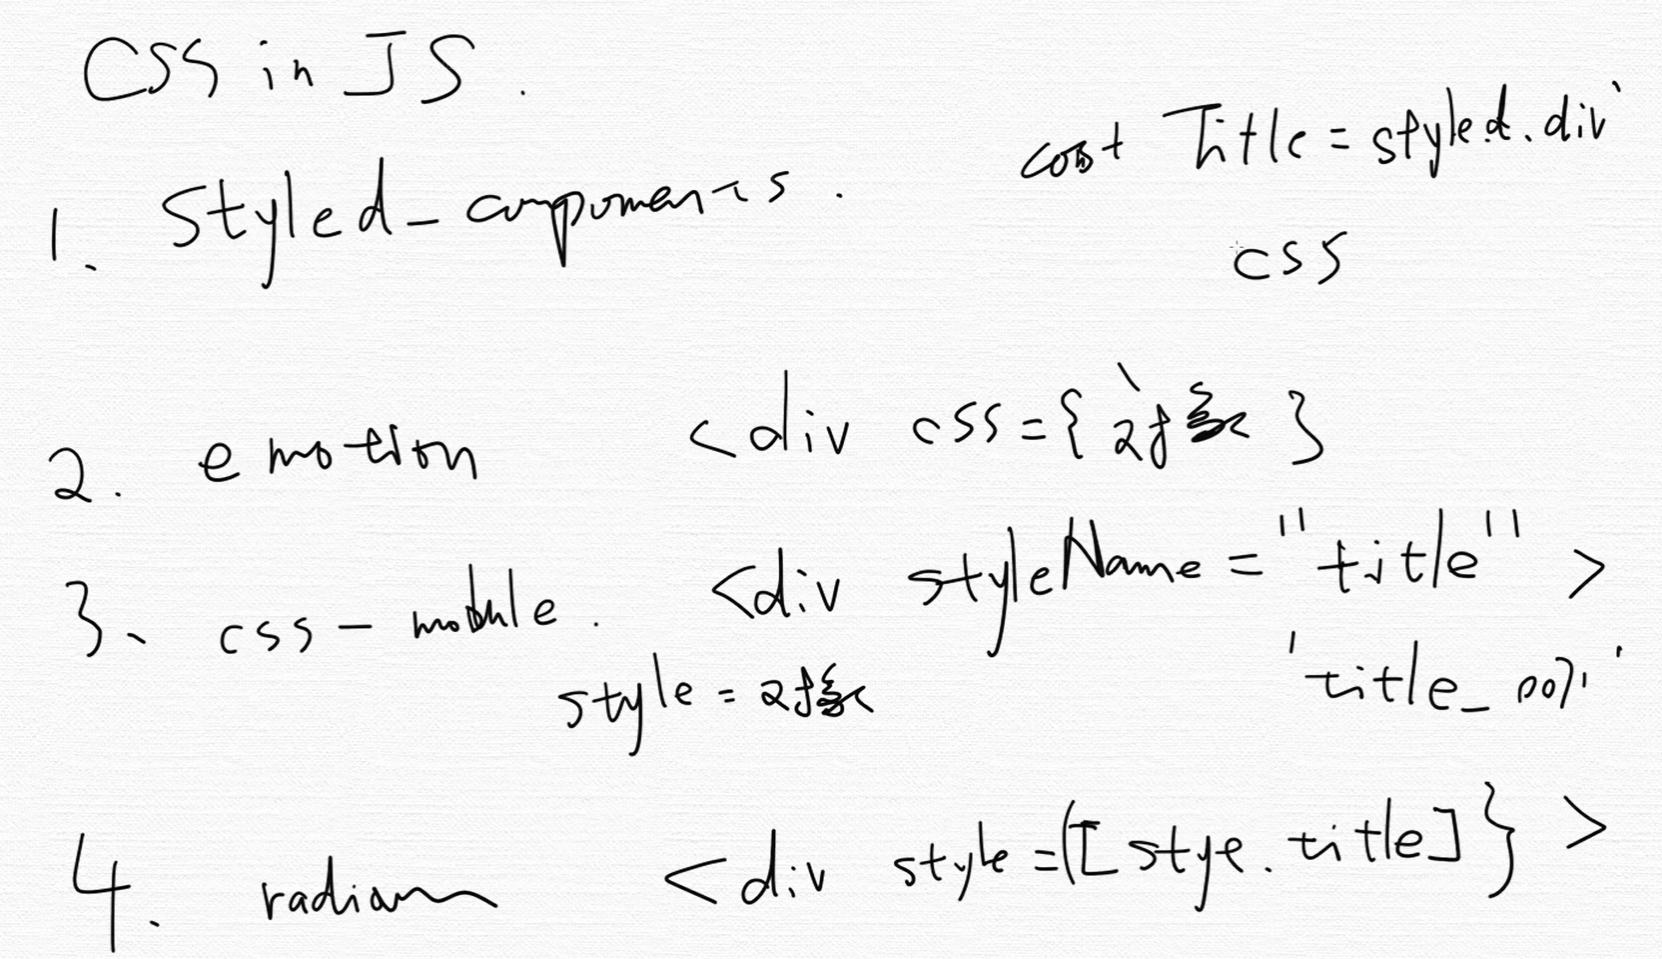 CSS in JS.
1. Styled-components.
const Title = styled.div`
css
2. emotion <div css={`对象}
3、css-module. <div styleName="title">
style=对象 'title_001'
4. radium <div style={[stye.title]}>